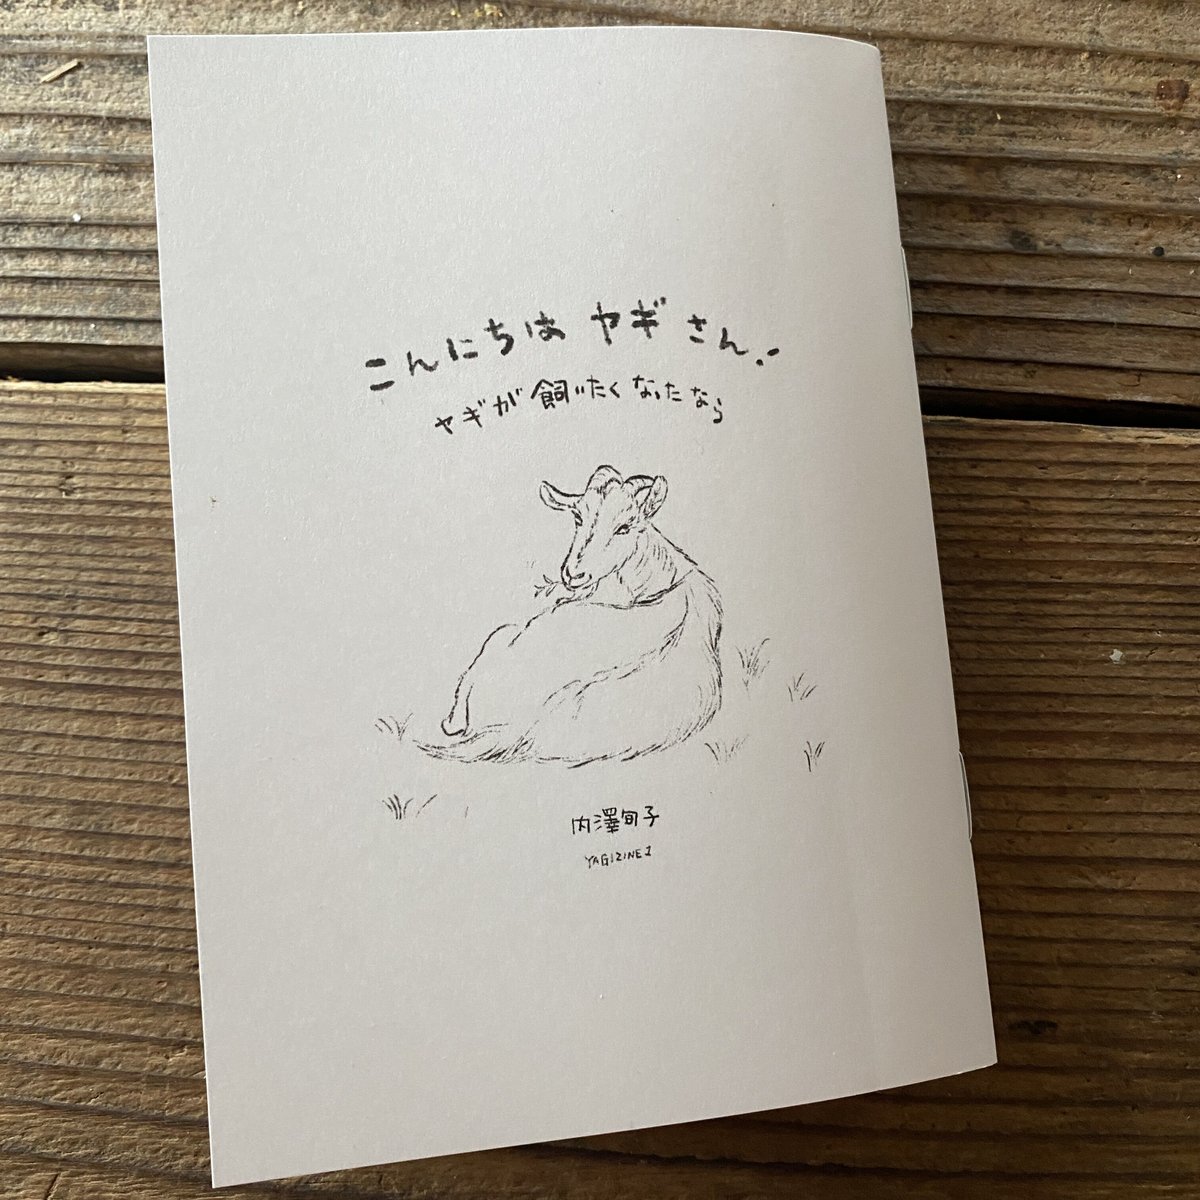 こんにちは ヤギ さん!
ヤギが 飼いたく なったなら
内澤旬子
YAGIZINE 1